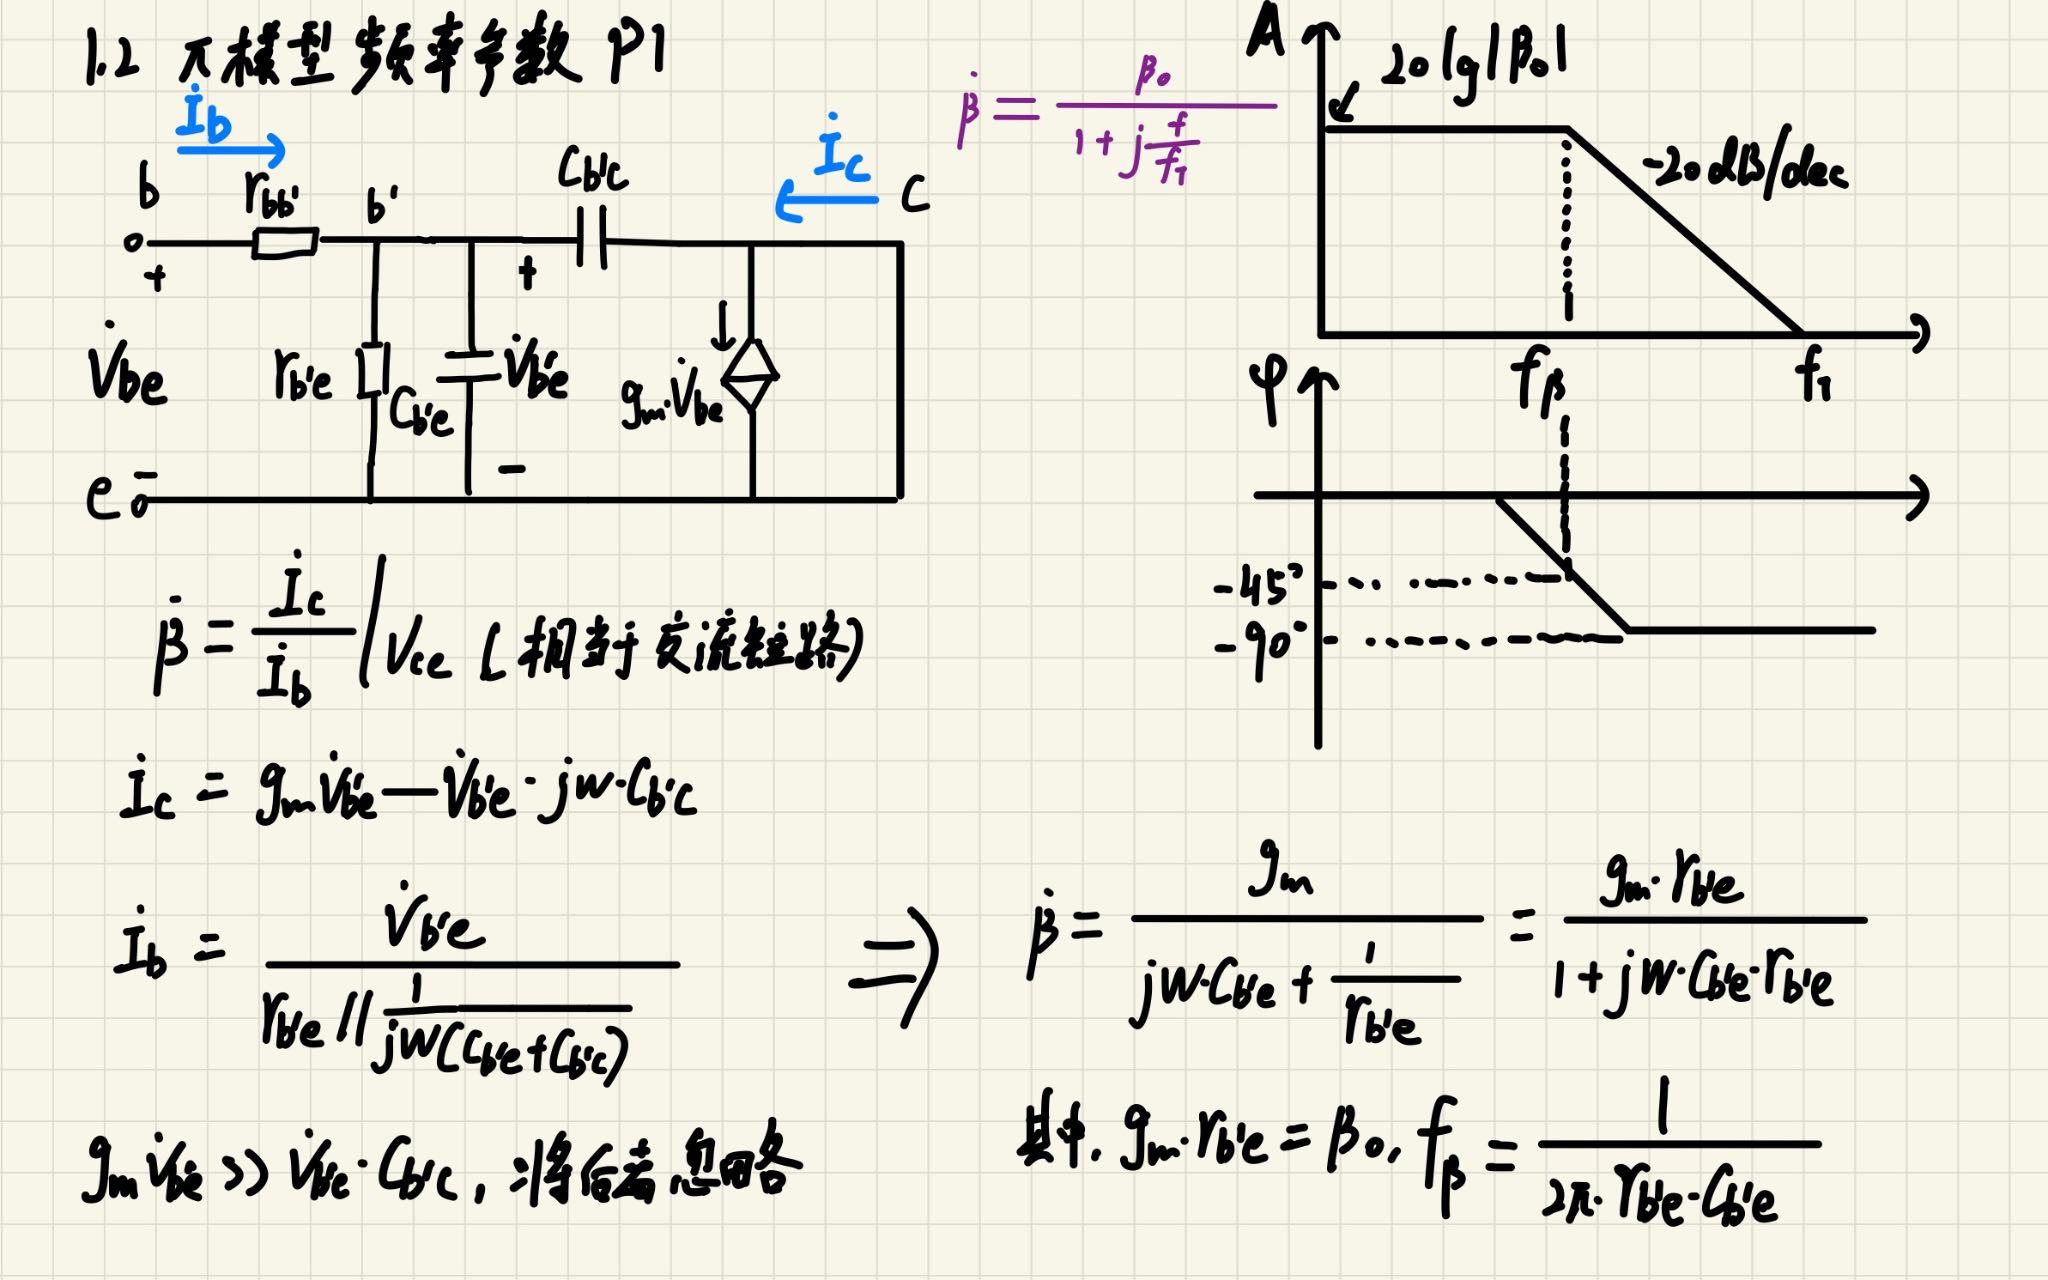 1.2 π模型 频率参数 P1
İb
b
rbb'
b'
Cb'c
İc
c
+
+
V̇be
rb'e
Cb'e
V̇b'e
gm·V̇be
e
-
-
β̇ = β₀ / (1 + j f/f₁)
A
20lg|β₀|
-20dB/dec
fβ
f₁
φ
-45°
-90°
β̇ = İc / İb | Vce (相当于交流短路)
İc = gmV̇b'e — V̇b'e · jw · Cb'c
İb = V̇b'e / (rb'e // 1 / jw(Cb'e + Cb'c))
gmV̇b'e >> V̇b'e · Cb'c, 将后者忽略
⇒ β̇ = gm / (jw·Cb'e + 1 / rb'e) = gm·rb'e / (1 + jw·Cb'e·rb'e)
其中, gm·rb'e = β₀, fβ = 1 / (2π·rb'e·Cb'e)